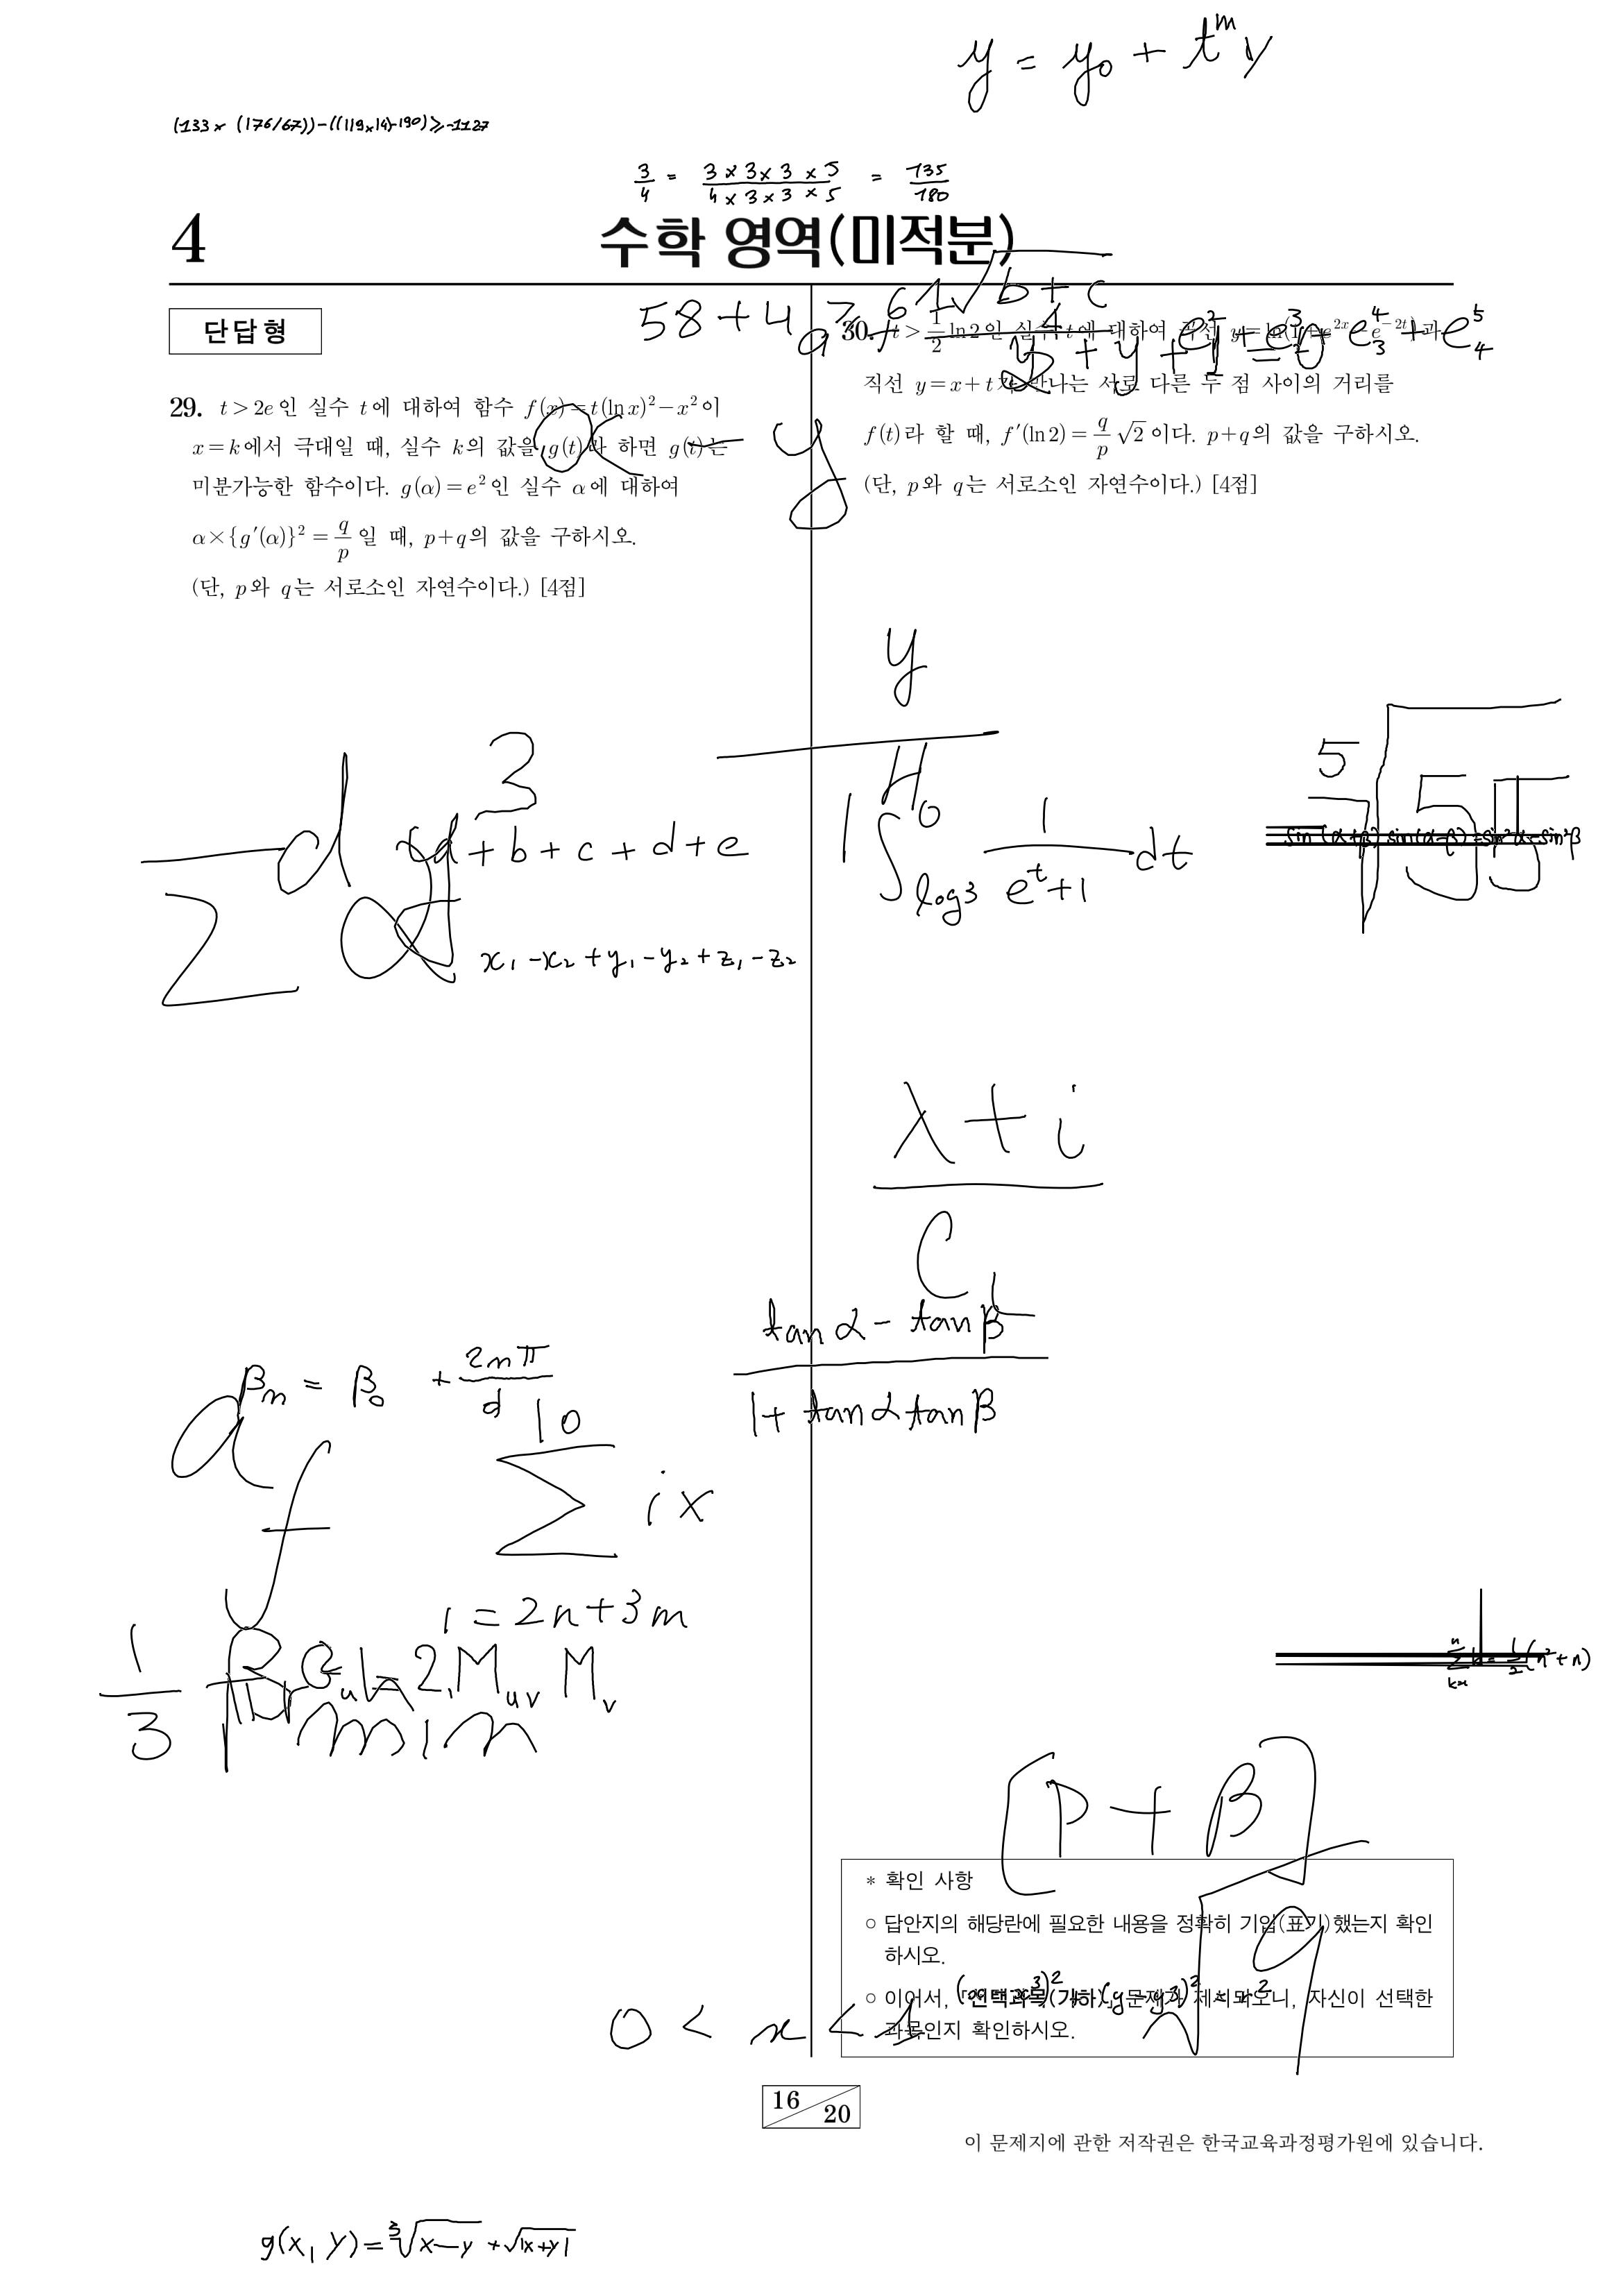 y = y₀ + tᵐ v
(133× (176/67))-((119×14)-190) ≥ -1127
3/4 = (3×3×3×5)/(4×3×3×5) = 135/180
4
수학 영역(미적분)
단답형
29. t > 2e인 실수 t에 대하여 함수 f(x) = t(ln x)² - x²이
x = k에서 극대일 때, 실수 k의 값을 g(t)라 하면 g(t)는
미분가능한 함수이다. g(α) = e²인 실수 α에 대하여
α×{g′(α)}² = q/p 일 때, p+q의 값을 구하시오.
(단, p와 q는 서로소인 자연수이다.) [4점]
58 + 4
√(b+c)
30. t > 1/2 ln 2인 실수 t에 대하여 직선
직선 y = x + t가 만나는 서로 다른 두 점 사이의 거리를
f(t)라 할 때, f′(ln 2) = q/p √2이다. p+q의 값을 구하시오.
(단, p와 q는 서로소인 자연수이다.) [4점]
y
y
3
+ b + c + d + e
x₁ - x₂ + y₁ - y₂ + z₁ - z₂
∫ log3 1/(eᵗ+1) dt
sin(α+β) sin(α-β) = sin²α - sin²β
λ + i
C
(tan α - tan β)/(1 + tan α tan β)
βₙ = β₀ + 2nπ/d
10
∑ ix
i = 2n + 3m
1/3
min
(n² + n)
[P + β]
√9
* 확인 사항
○ 답안지의 해당란에 필요한 내용을 정확히 기입(표기)했는지 확인
하시오.
○ 이어서, 「선택과목(기하)」 문제가 제시되오니, 자신이 선택한
과목인지 확인하시오.
0 < x < 1
16
20
이 문제지에 관한 저작권은 한국교육과정평가원에 있습니다.
g(x, y) = ∛(x-y) + √|x+y|